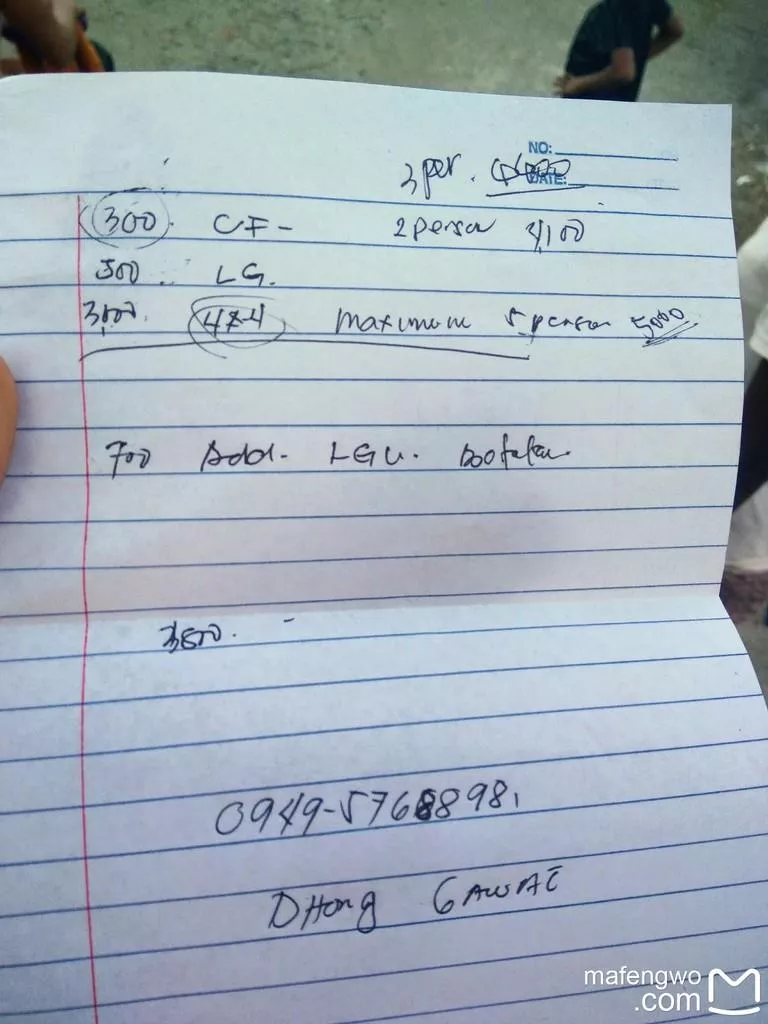 NO:
3 per. DATE:
300 CF- 2 person 4100
500 LG.
3000. 4x4 maximum 5 person 5000
700 Add. LGU.
3500. -
0949-5768898
DHong
mafengwo
.com